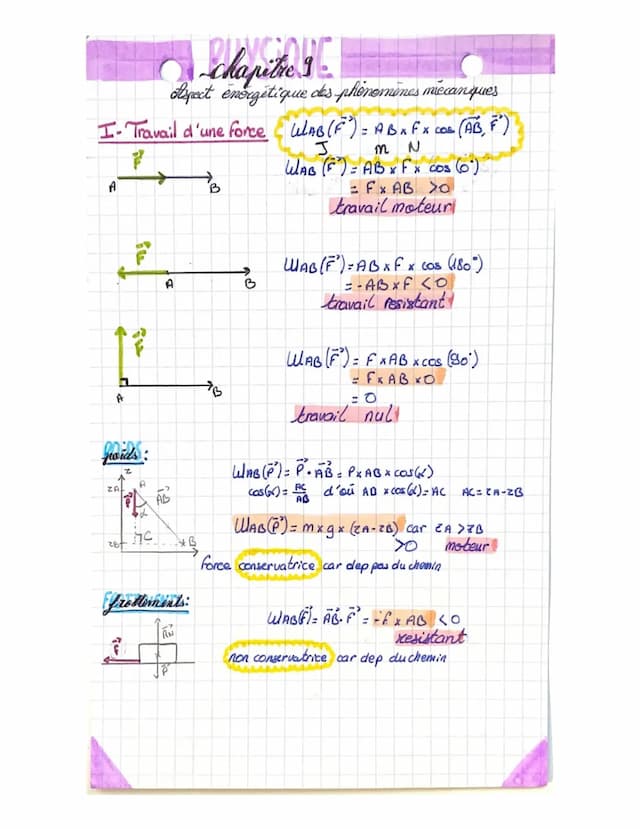 PHYSIQUE
chapitre 9
Aspect énergétique des phénomènes mécaniques
I- Travail d'une force
WAB(F⃗) = AB x F x cos(AB⃗, F⃗)
J m N
F⃗
A B
WAB(F⃗) = AB x F x cos(0°)
= F x AB > 0
travail moteur
F⃗
A B
WAB(F⃗) = AB x F x cos(180°)
= -AB x F < 0
travail resistant
F⃗
A B
WAB(F⃗) = F x AB x cos(90°)
= F x AB x 0
= 0
travail nul
POIDS
poids:
z
zA A
P⃗ AB⃗
α
C
zB B
WAB(P⃗) = P⃗ · AB⃗ = P x AB x cos(α)
cos(α) = AC/AB d'où AB x cos(α) = AC AC = zA - zB
WAB(P⃗) = m x g x (zA - zB) car zA > zB
>0 moteur
force conservatrice car dep pas du chemin
FROTTEMENTS
frottements:
f⃗ RN⃗
P⃗
WAB(f⃗) = AB⃗ · F⃗ = -f x AB < 0
resistant
non conservatrice car dep du chemin